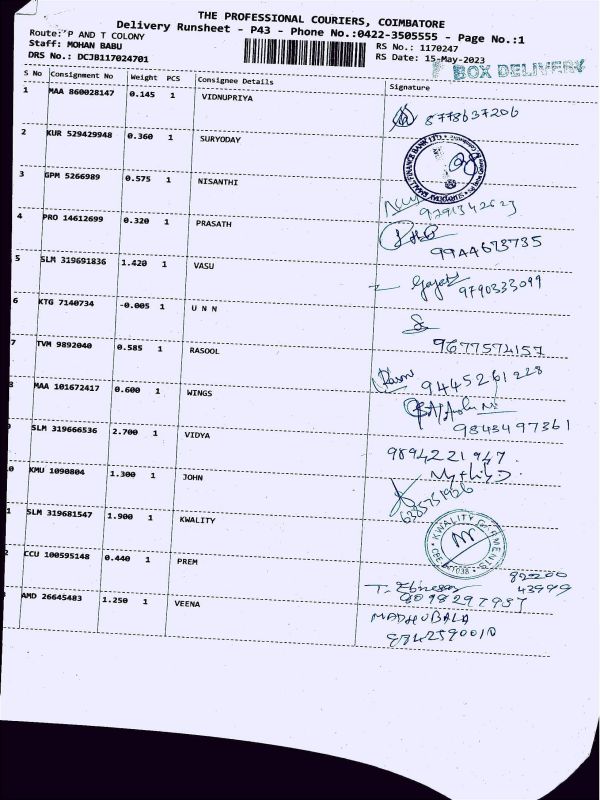 THE PROFESSIONAL COURIERS, COIMBATORE
Delivery Runsheet - P43 - Phone No.:0422-3505555 - Page No.:1
Route: P AND T COLONY
RS No.: 1170247
Staff: MOHAN BABU
RS Date: 15-May-2023
DRS No.: DCJB117024701
BOX DELIVERY
S No Consignment No Weight PCS Consignee Details Signature
1 MAA 860028147 0.145 1 VIDNUPRIYA 8778637206
2 KUR 529429948 0.360 1 SURYODAY
3 GPM 5266989 0.575 1 NISANTHI
4 PRO 14612699 0.320 1 PRASATH 9944673735
5 SLM 319691836 1.420 1 VASU 9790333099
6 KTG 7140734 -0.005 1 U N N 9677574157
7 TVM 9892040 0.585 1 RASOOL 9445261228
8 MAA 101672417 0.600 1 WINGS 9843497361
SLM 319666536 2.700 1 VIDYA 9894221947
0 KMU 1090804 1.300 1 JOHN
1 SLM 319681547 1.900 1 KWALITY
2 CCU 100595148 0.440 1 PREM
AMD 26645483 1.250 1 VEENA MADHUBALA
9842590010